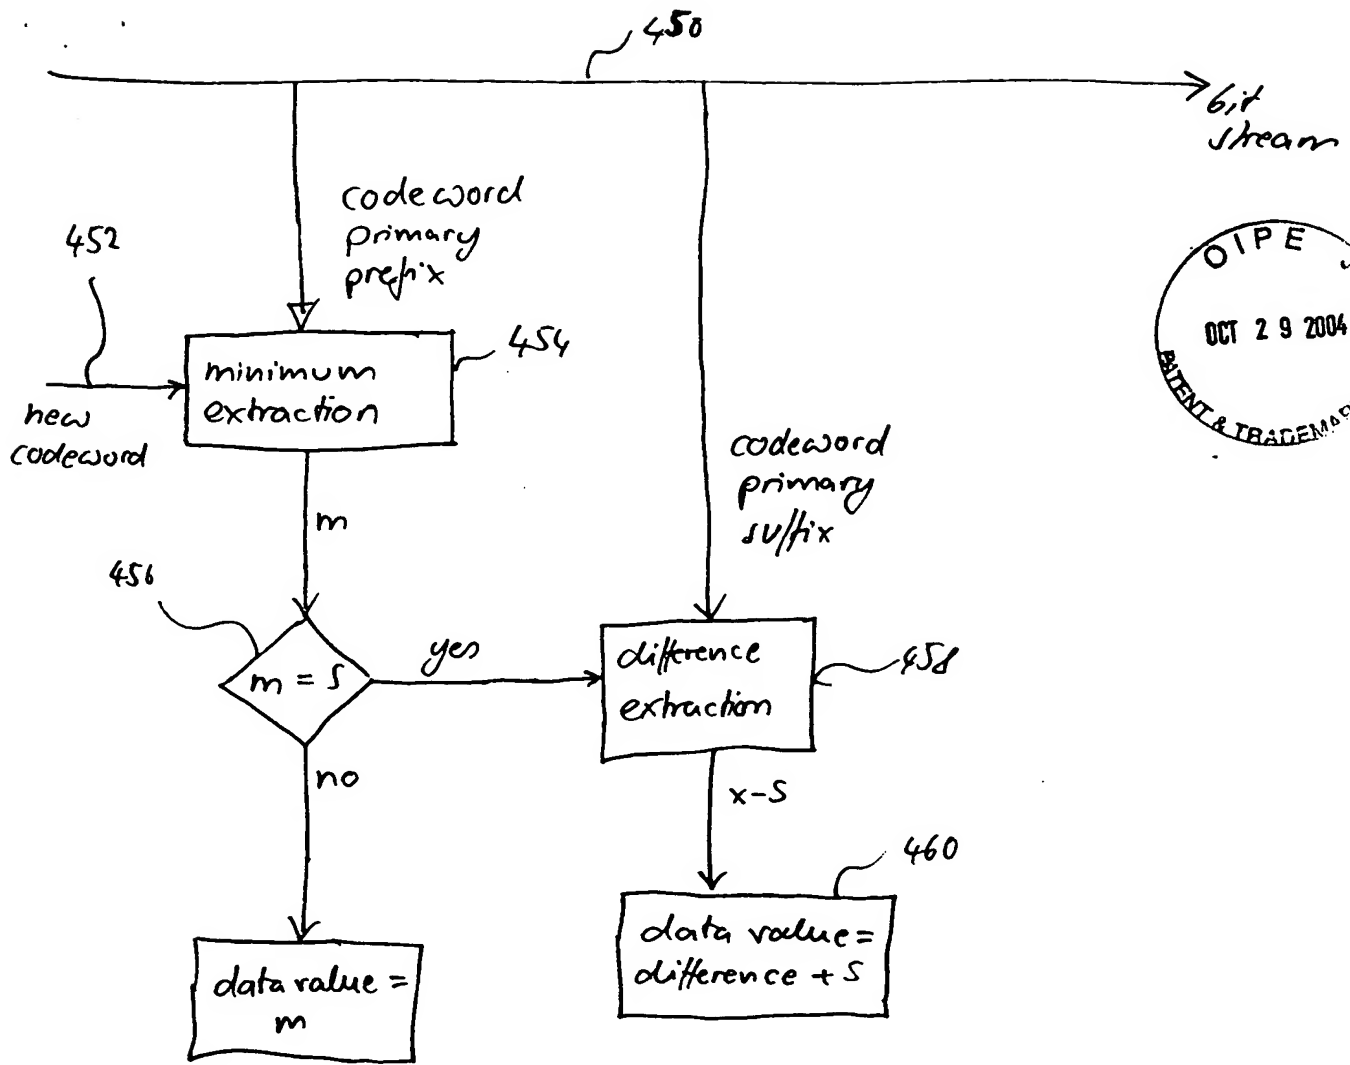 450
bit
stream
codeword
primary
prefix
452
OIPE
OCT 29 2004
PATENT & TRADEMAR
454
minimum
extraction
new
codeword
codeword
primary
suffix
m
456
m = S
yes
difference
extraction
458
no
x-S
460
data value =
difference + S
data value =
m